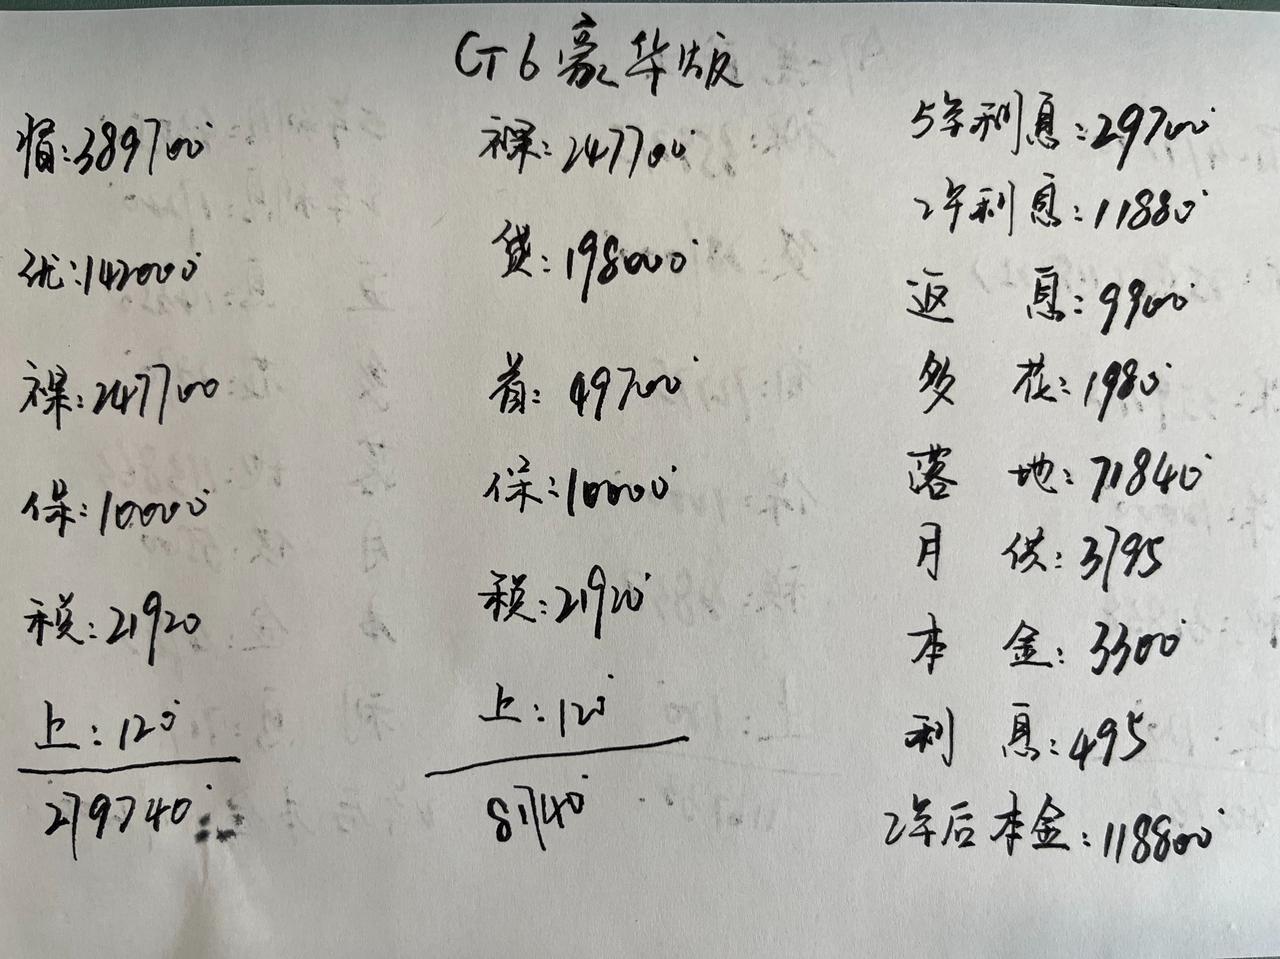 CT6豪华版
指:389700
优:142000
裸:247700
保:10000
税:21920
上:120
279740
裸:247700
贷:198000
首:49700
保:10000
税:21920
上:120
81740
5年利息:29700
2年利息:11880
返息:9900
多花:1980
落地:71840
月供:3795
本金:3300
利息:495
2年后本金:118800